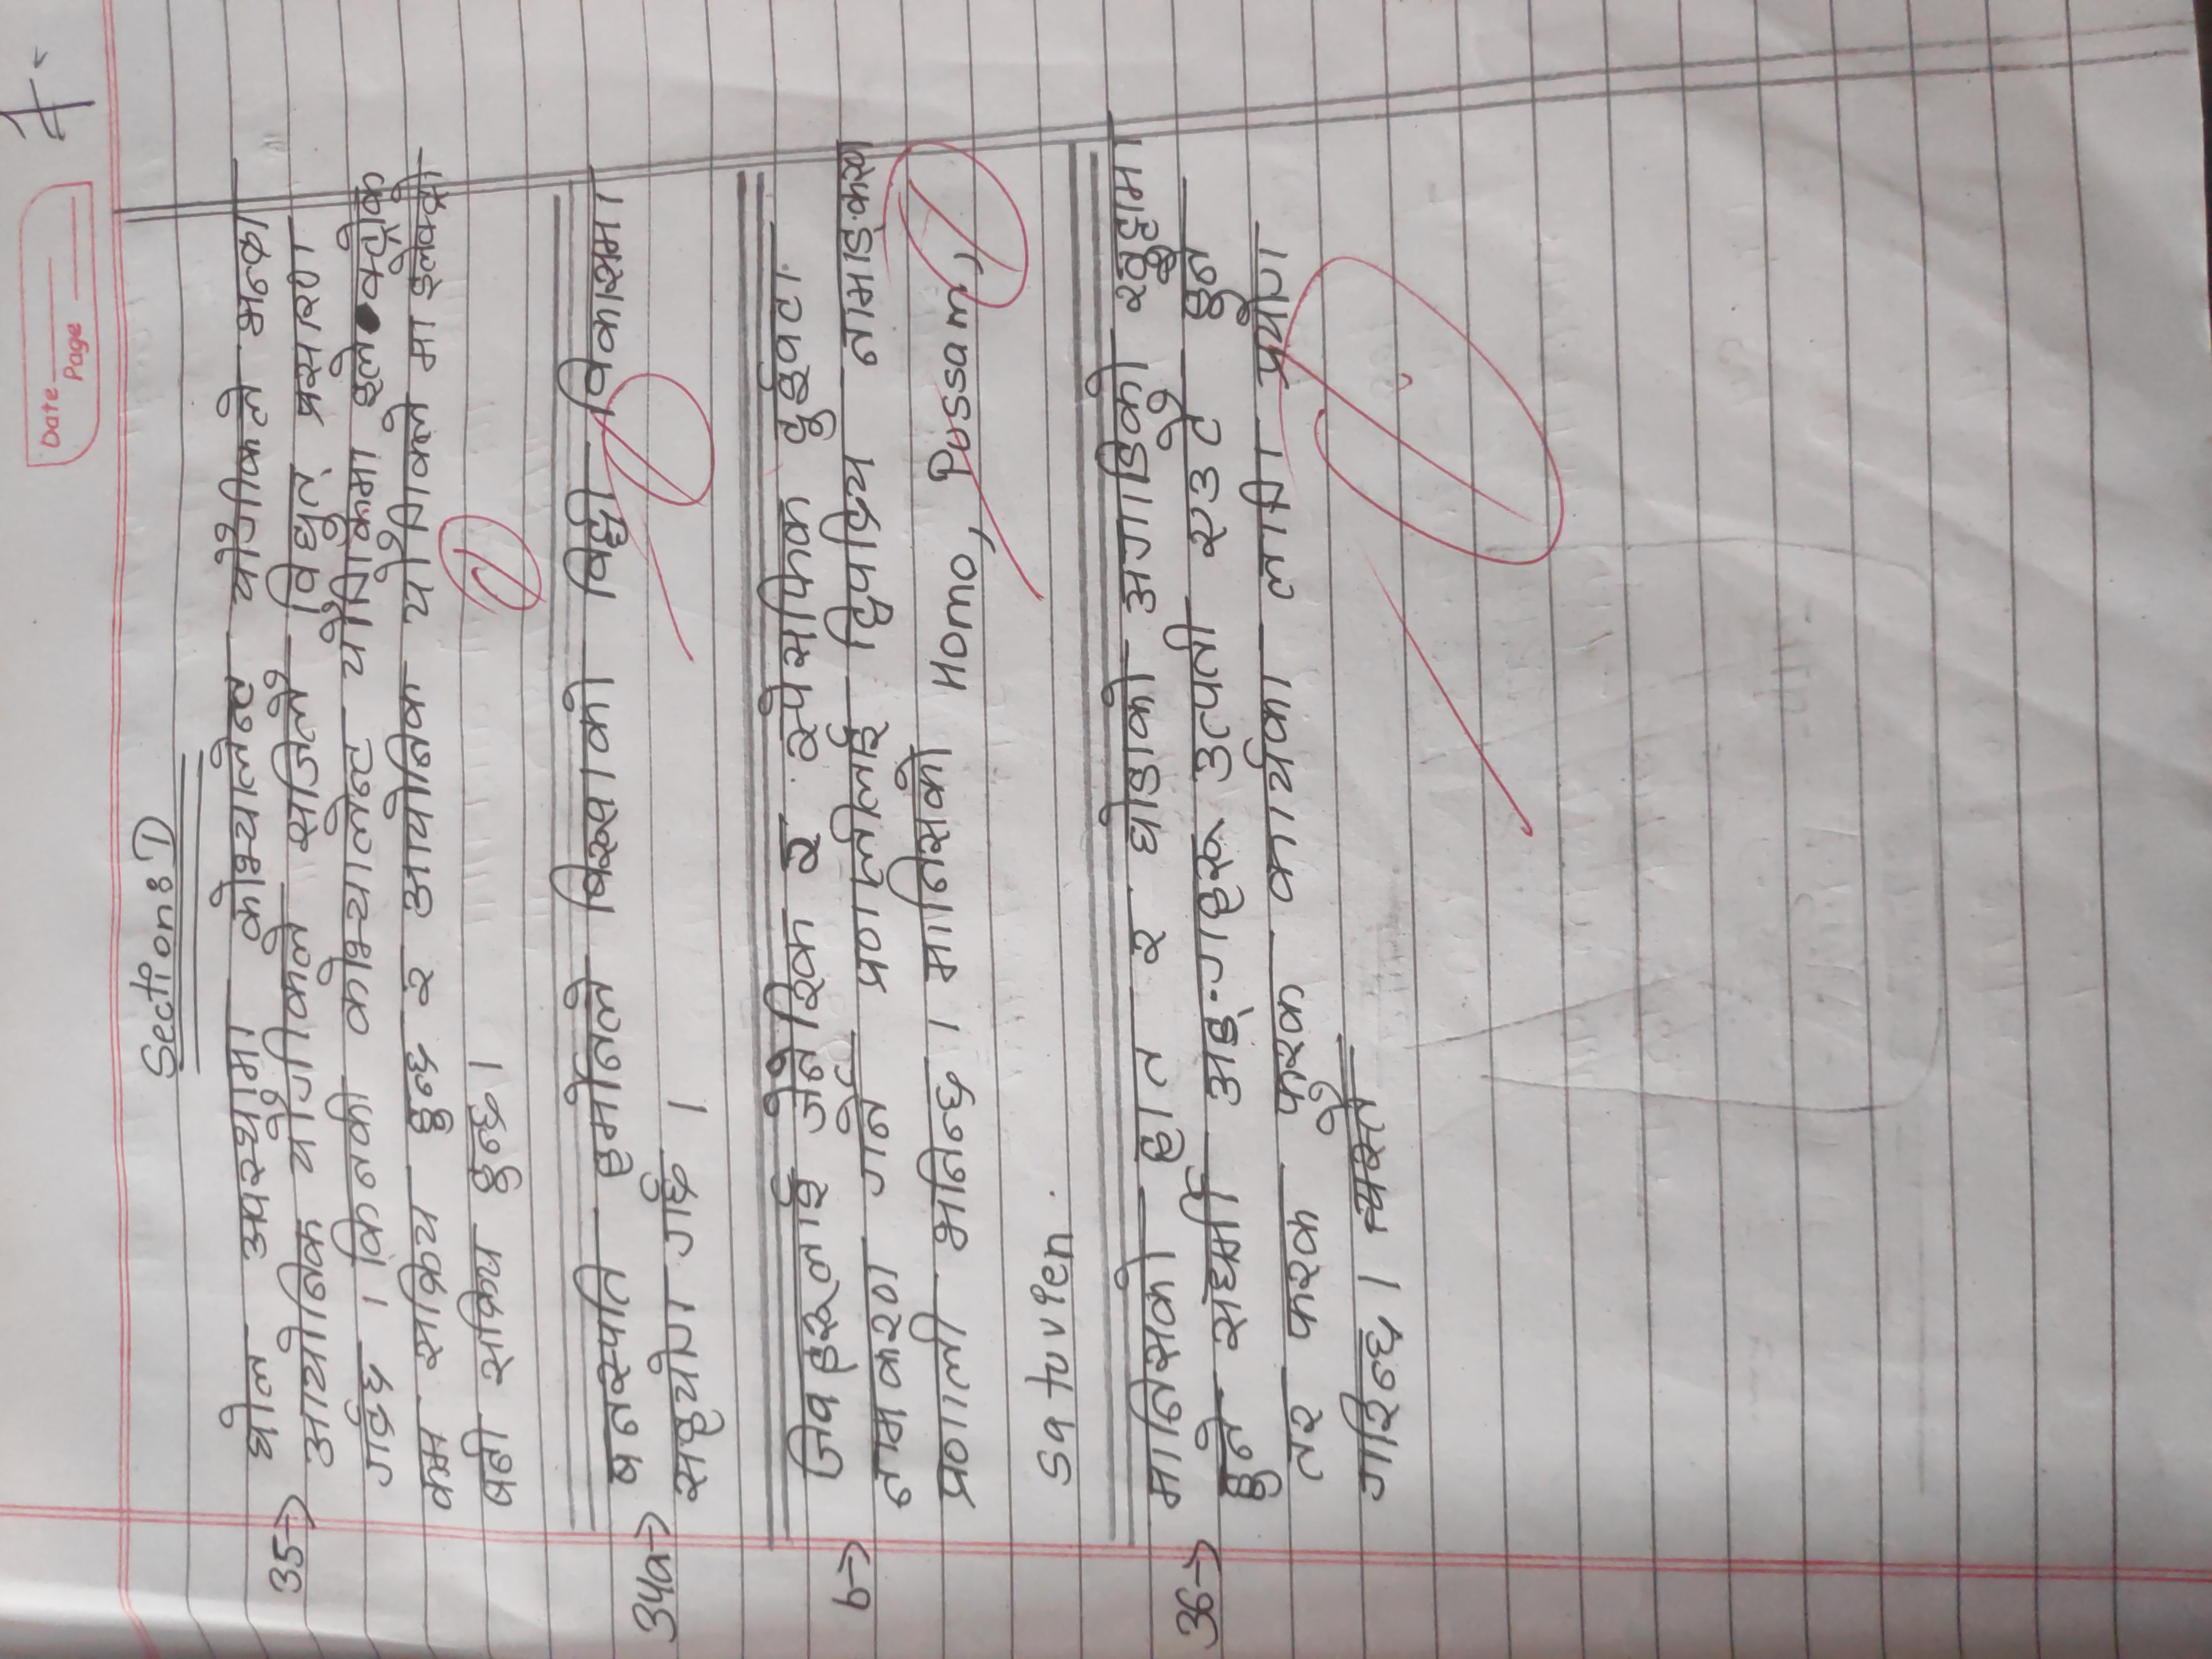 Date
Page
7
Section: D
35→ घोल अवस्थामा कोभ्यालेन्ट यौगीकले भन्दा
आयोनिक यौगीकले सजिलै विधुत् प्रसारण
गर्दछ । किनकी कोभ्यालेन्ट यौगिकमा
कम सक्रिय हुन्छ र आयोनिक यौगिकले मा इलेक्ट्रो
बढी सक्रिय हुन्छ।
1
34a→ बनस्पति हर्मोनले बिरूवाको विद्दी विकासमा
सहयोग गर्छ ।
1
b→ जिवहरूलाई जेनेरिक र स्पेसफिक दुईवटा
नामकरण गर्ने प्रणालीलाई द्विपद्रिय नामाङ्करण
प्रणाली भनिन्छ । मानिसको Homo, Pussam,
1
satuvien.
36→ मानिसको हात र घोडाको अगाडिको खुट्टामा
हुने सधर्मी अङ्गहरू उत्पती एउटै हुने
तर फरक फरक कार्यका लागि प्रयोग
गरिन्छ । त्यस्तै
1